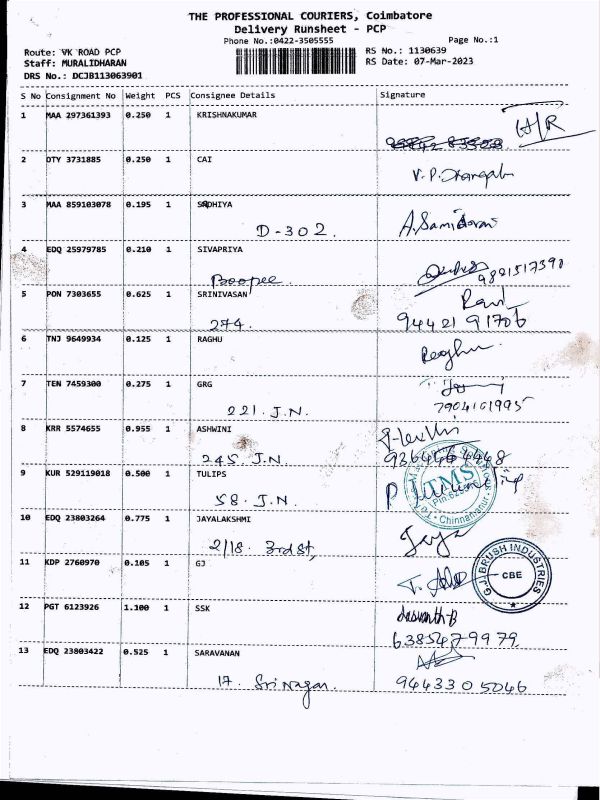 THE PROFESSIONAL COURIERS, Coimbatore
Delivery Runsheet - PCP
Phone No.:0422-3505555 Page No.:1
Route: VK ROAD PCP RS No.: 1130639
Staff: MURALIDHARAN RS Date: 07-Mar-2023
DRS No.: DCJB113063901
S No Consignment No Weight PCS Consignee Details Signature
1 MAA 297361393 0.250 1 KRISHNAKUMAR
H/R
2 OTY 3731885 0.250 1 CAI
V.P.
3 MAA 859103078 0.195 1 SADHIYA
D-302.
4 EDQ 25979785 0.210 1 SIVAPRIYA
Boopee 9821517390
5 PON 7303655 0.625 1 SRINIVASAN
274. 94421 91706
6 TNJ 9649934 0.125 1 RAGHU
Raghu
7 TEN 7459300 0.275 1 GRG
221. J.N. 7904101995
8 KRR 5574655 0.955 1 ASHWINI
245 J.N
9 KUR 529119018 0.500 1 TULIPS
58. J.N. TMS
Chinnavedampatti
10 EDQ 23803264 0.775 1 JAYALAKSHMI
2/18 3rd St, Jaya
11 KDP 2760970 0.105 1 GJ
G.J. BRUSH INDUSTRIES
CBE
12 PGT 6123926 1.100 1 SSK
Jaswanth-B
6385479979
13 EDQ 23803422 0.525 1 SARAVANAN
17. Sri Nagar. 94433 05046